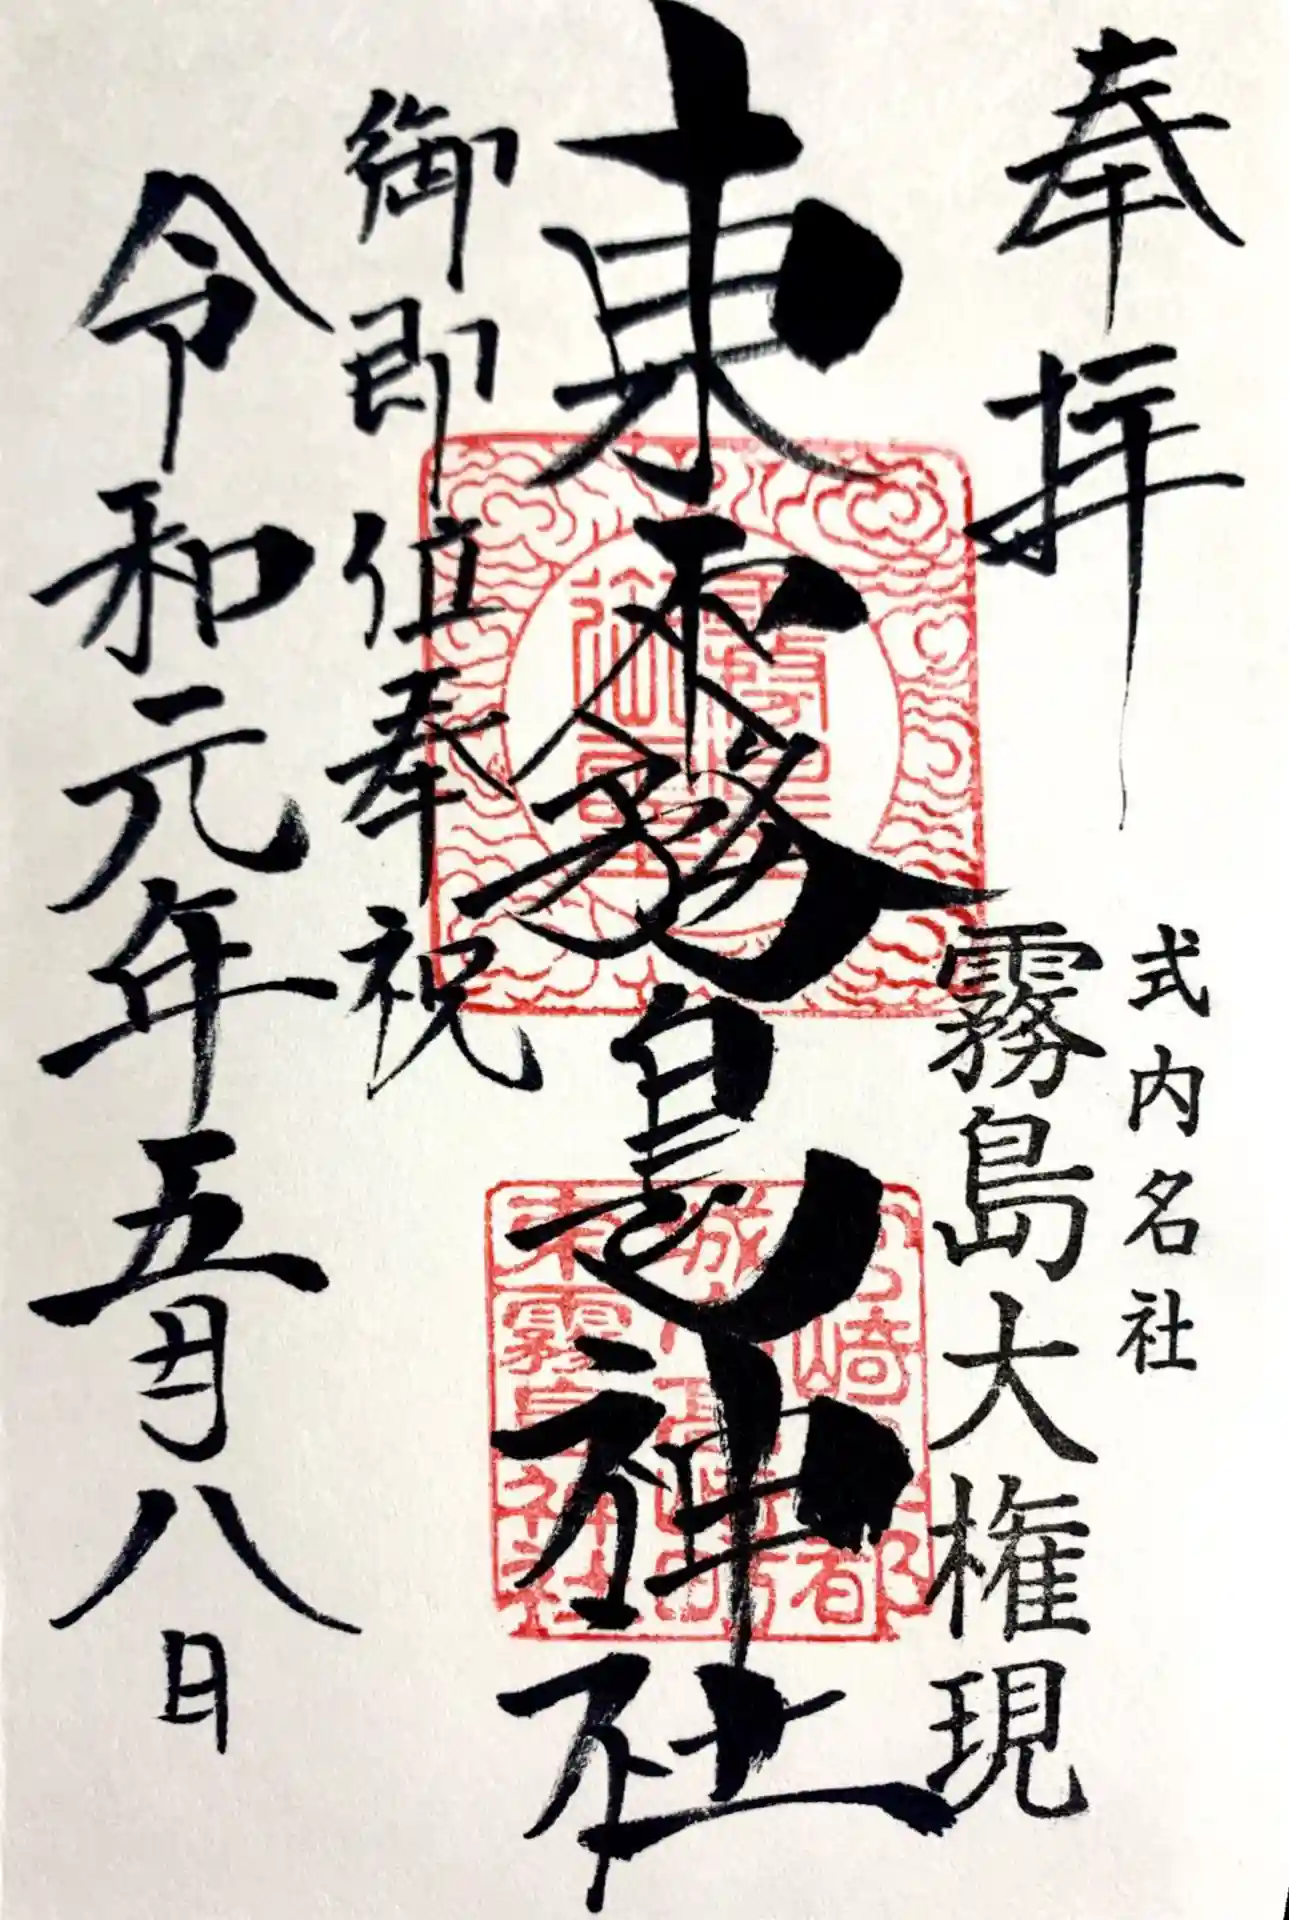 奉拝
式内名社
霧島大権現
東霧島神社
御即位奉祝
令和元年五月八日
東霧島神社